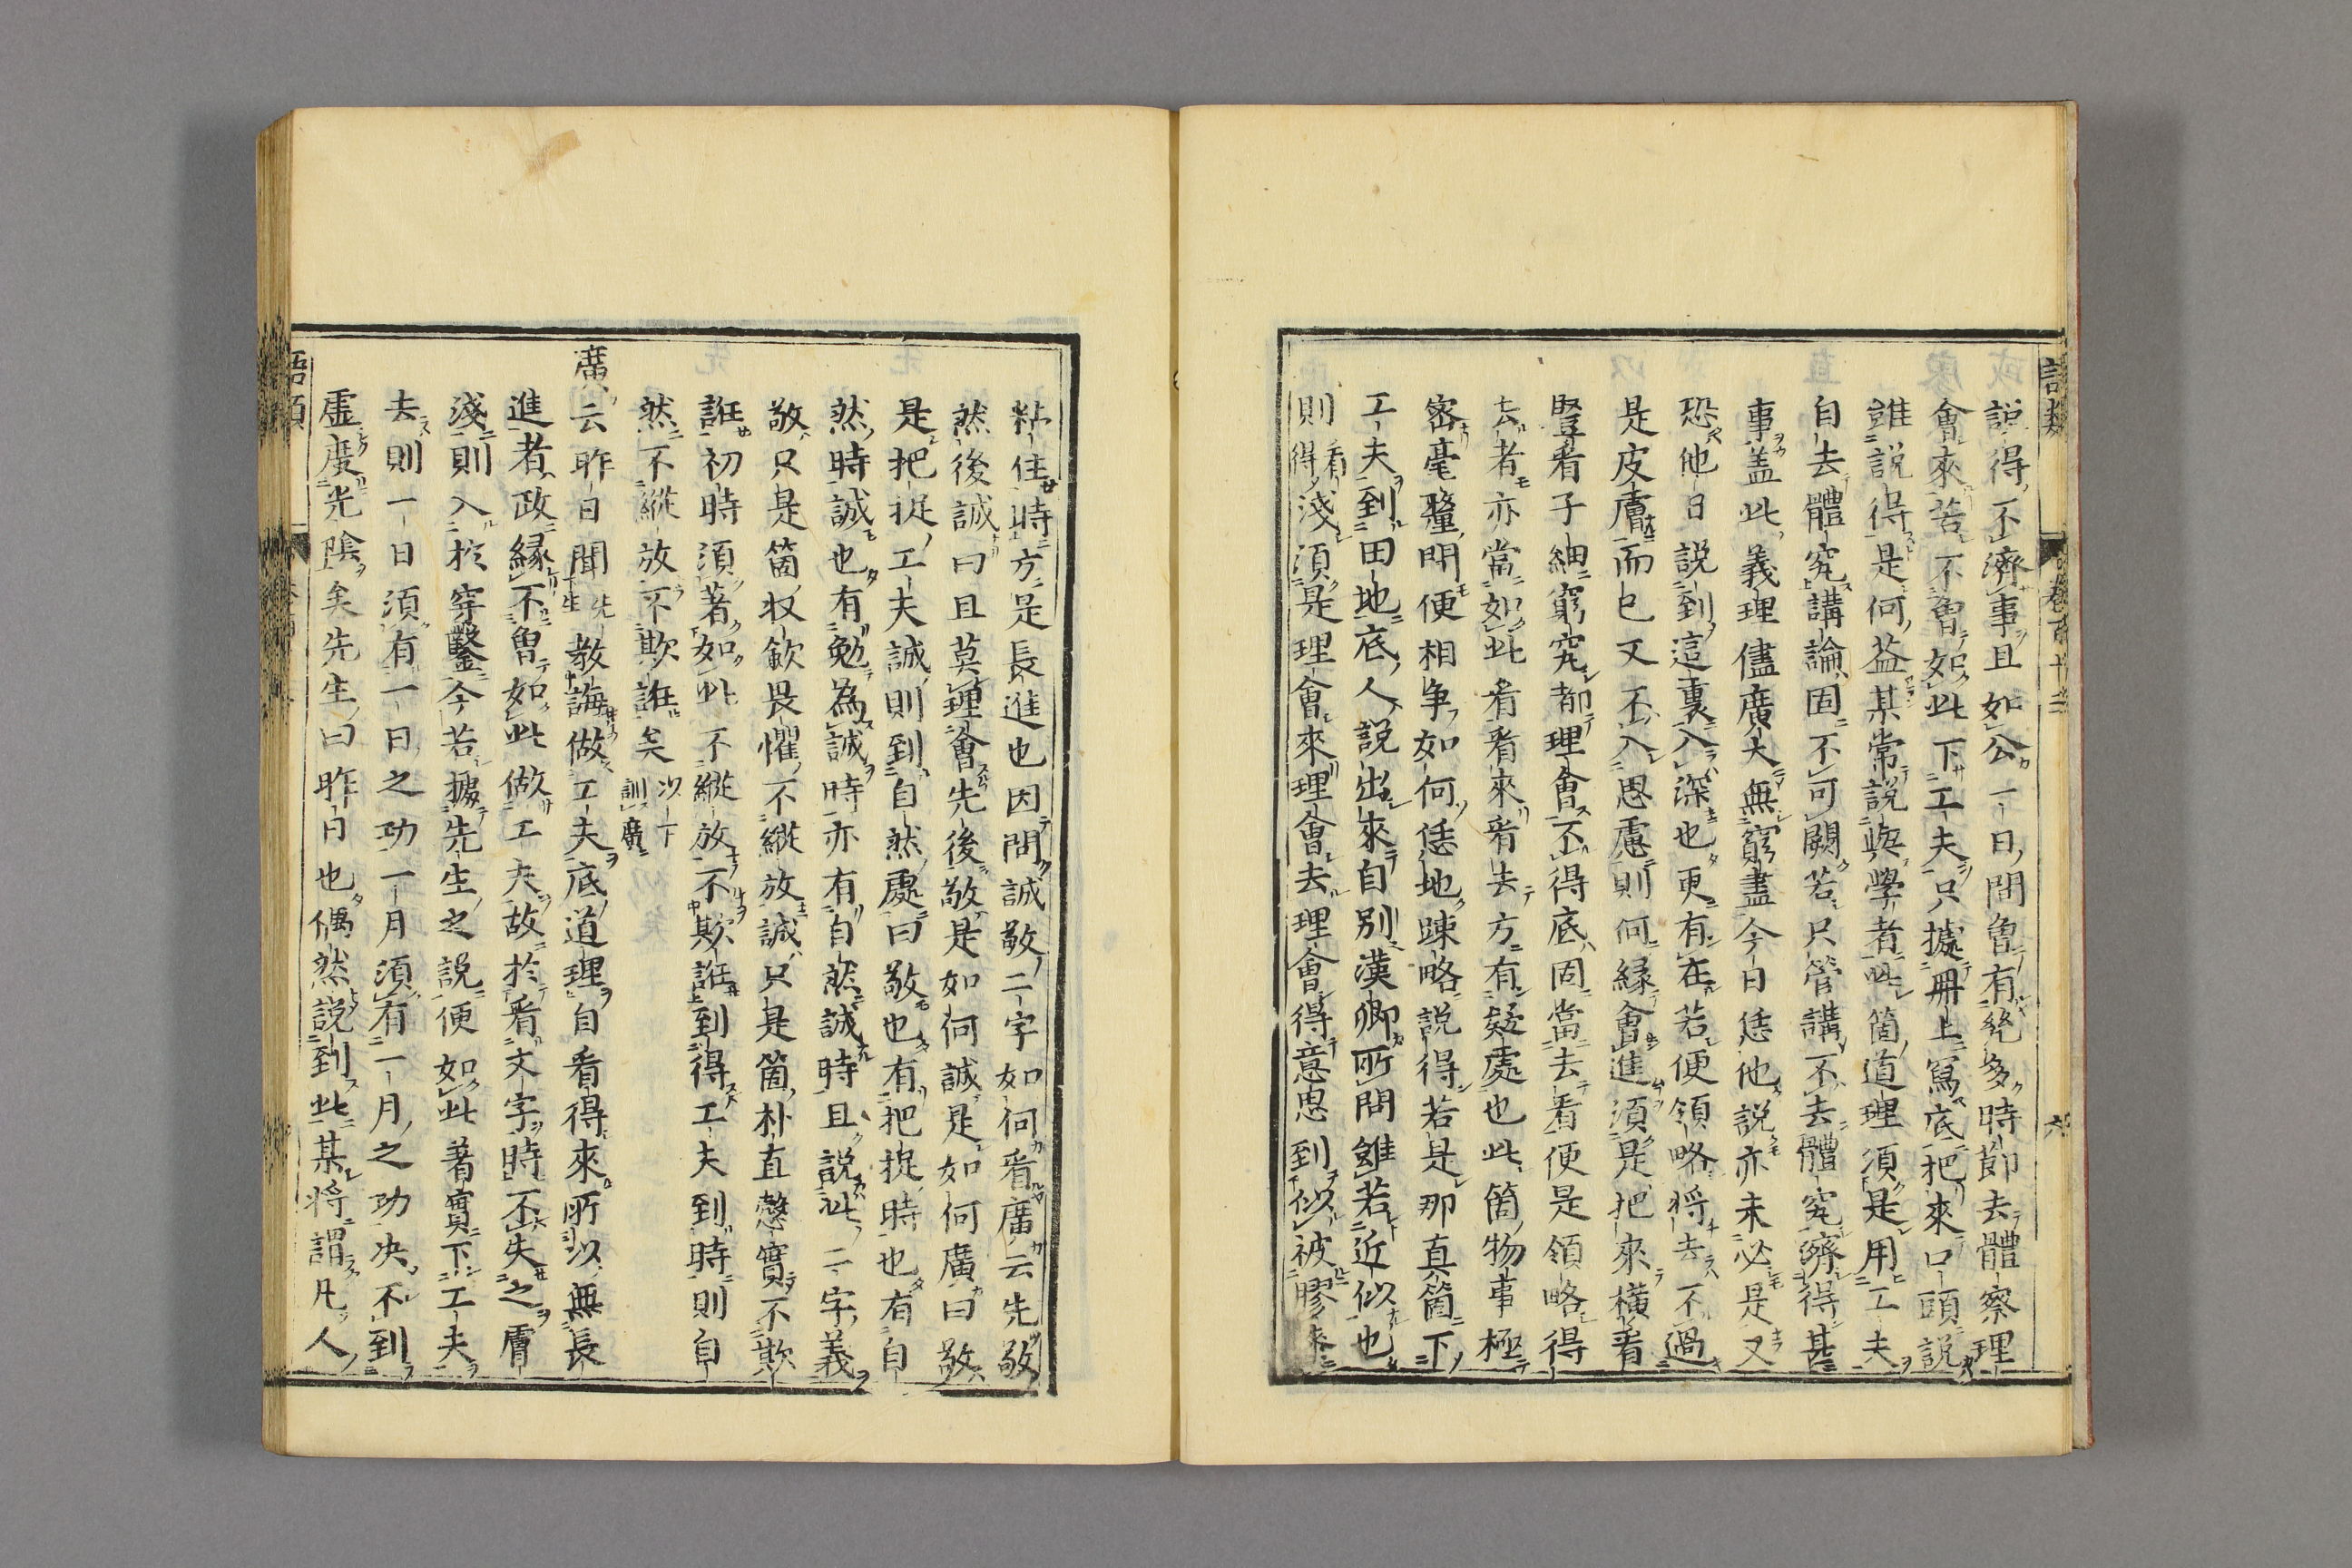 語類
卷百十三
六
說得不濟事且如公一日間曾有幾多時節去體察理
會來若不曾如此下工夫只據冊上寫底把來口頭說
雖說得是何益某常說與學者此箇道理須是用工夫
自去體究講論固不可闕若只管講不去體究濟得甚
事蓋此義理儘廣大無窮盡今日恁他說亦未必是又
恐他日說到這裏入深也更有在若便領略將去不過
是皮膚而已又不入思慮則何緣會進須是把來橫看
豎看子細窮究都理會不得底固當去看便是領略得
去者亦當如此看看來看去方有疑處也此箇物事極
密毫釐間便相爭如何恁地踈略說得若是那真箇下
工夫到田地底人說出來自別漢卿所問雖若近似也
則看得淺須是理會來理會去理會得意思到似被膠漆
粘住時方是長進也因問誠敬二字如何看廣云先敬
然後誠曰且莫理會先後敬是如何誠是如何廣曰敬
是把捉工夫誠則到自然處曰敬也有把捉時也有自
然時誠也有勉為誠時亦有自然誠時且說此二字義
敬只是箇收斂畏懼不縱放誠只是箇朴直慤實不欺
誑初時須著如此不縱放不欺誑到得工夫到時則自
然不縱放不欺誑矣以下訓廣
廣云昨日聞先生教誨做工夫底道理自看得來所以無長
進者政緣不曾如此做工夫故於看文字時不失之膚
淺則入於穿鑿今若據先生之說便如此著實下工夫
去則一日須有一日之功一月須有一月之功決不到
虛度光陰矣先生曰昨日也偶然說到此某將謂凡人
語類